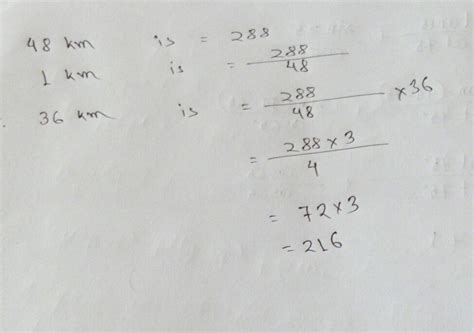 48 km is = 288
1 km is = 288/48
36 km is = 288/48 × 36
= 288 × 3/4
= 72 × 3
= 216